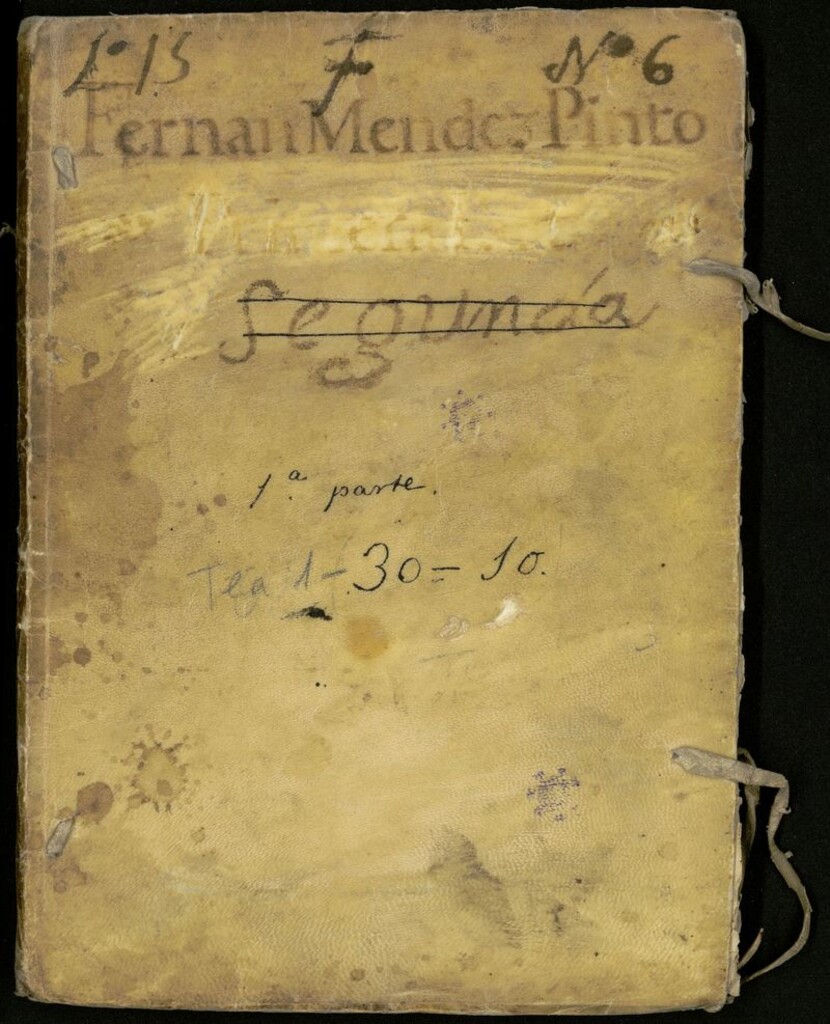 L.º 15 F N.º 6
Fernan Mendez Pinto
Segunda
1.ª parte.
Tea 1-30=10.